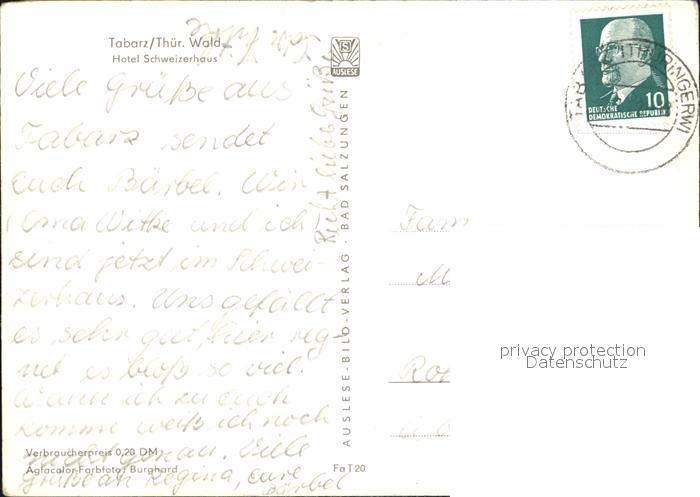 Tabarz/Thür. Wald
Hotel Schweizerhaus
Viele Grüße aus
Tabarz sendet
euch Bärbel. Wir
(Oma Witke und ich)
sind jetzt im Schwei-
zerhaus. Uns gefällt
es sehr gut, hier reg-
net es bloß so viel.
Wann ich zu euch
komme weiß ich noch
nicht genau. Viele
Grüße an Regina, eure
Bärbel
Verbraucherpreis 0,20 DM
Agfacolor-Farbfoto: Burghard
Fa T 20
Recht liebe Grüße
AUSLESE
AUSLESE-BILD-VERLAG · BAD SALZUNGEN
10
DEUTSCHE
DEMOKRATISCHE REPUBLIK
Fam
M
privacy protection
Datenschutz